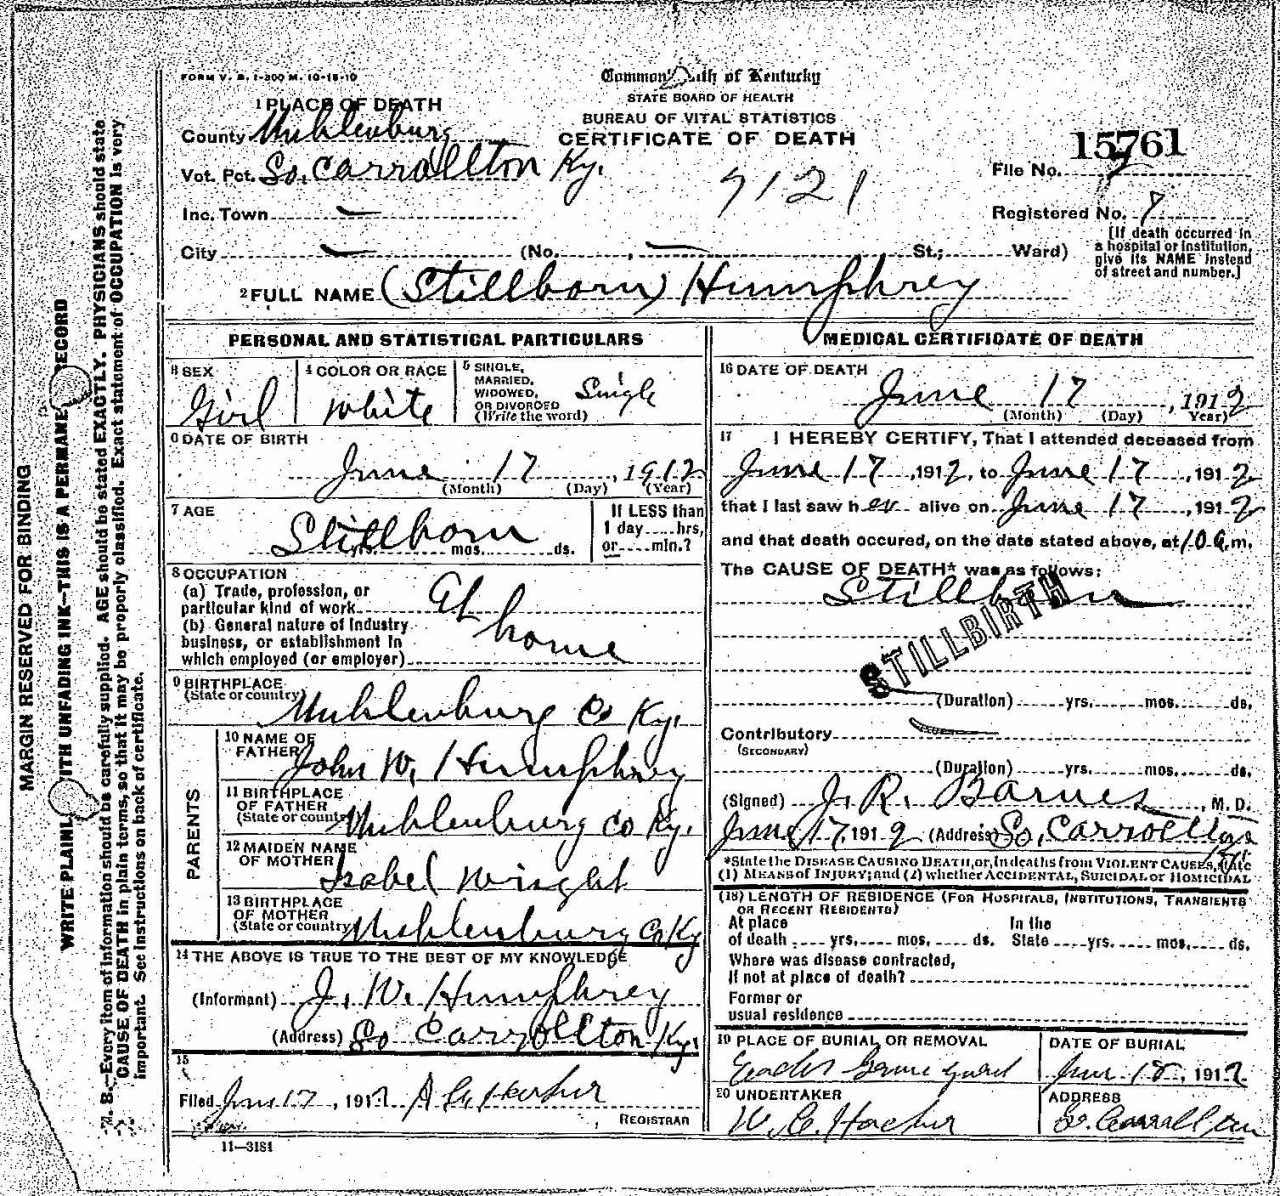 FORM V. S. 1-300 M. 10-18-10
Commonwealth of Kentucky
STATE BOARD OF HEALTH
BUREAU OF VITAL STATISTICS
CERTIFICATE OF DEATH
1 PLACE OF DEATH
County Muhlenburg
Vot. Pct. So. Carrollton Ky.
Inc. Town
City (No. , St.; Ward)
15761
File No.
9121
Registered No. 7
[If death occurred in
a hospital or institution,
give its NAME instead
of street and number.]
2 FULL NAME (Stillborn) Humphrey
PERSONAL AND STATISTICAL PARTICULARS
3 SEX
Girl
4 COLOR OR RACE
White
5 SINGLE,
MARRIED,
WIDOWED,
OR DIVORCED
(Write the word)
Single
6 DATE OF BIRTH
June 17, 1912
(Month) (Day) (Year)
7 AGE
Stillborn
mos. ds.
If LESS than
1 day hrs,
or min.?
8 OCCUPATION
(a) Trade, profession, or
particular kind of work
(b) General nature of Industry
business, or establishment in
which employed (or employer)
At home
9 BIRTHPLACE
(State or country)
Muhlenburg Co Ky.
PARENTS
10 NAME OF
FATHER
John W. Humphrey
11 BIRTHPLACE
OF FATHER
(State or country)
Muhlenburg Co Ky.
12 MAIDEN NAME
OF MOTHER
Isabel Wright
13 BIRTHPLACE
OF MOTHER
(State or country)
Muhlenburg Co Ky
14 THE ABOVE IS TRUE TO THE BEST OF MY KNOWLEDGE
(Informant) J. W. Humphrey
(Address) So Carrollton Ky.
15
Filed June 17, 1912
REGISTRAR
11—3184
MEDICAL CERTIFICATE OF DEATH
16 DATE OF DEATH
June 17, 1912
(Month) (Day) Year)
17 I HEREBY CERTIFY, That I attended deceased from
June 17, 1912, to June 17, 1912
that I last saw her alive on June 17, 1912
and that death occured, on the date stated above, at 10 a.m.
The CAUSE OF DEATH* was as follows:
Stillborn
STILLBIRTH
(Duration) yrs. mos. ds.
Contributory
(SECONDARY)
(Duration) yrs. mos. ds.
(Signed) J. R. Barnes, M. D.
June 17, 1912 (Address) So. Carrollton
Ky.
*State the DISEASE CAUSING DEATH, or, in deaths from VIOLENT CAUSES, state
(1) MEANS of INJURY; and (2) whether ACCIDENTAL, SUICIDAL or HOMICIDAL
(18) LENGTH OF RESIDENCE (FOR HOSPITALS, INSTITUTIONS, TRANSIENTS
OR RECENT RESIDENTS)
At place In the
of death yrs. mos. ds. State yrs. mos. ds.
Where was disease contracted,
if not at place of death?
Former or
usual residence
19 PLACE OF BURIAL OR REMOVAL
Grave yard
DATE OF BURIAL
June 18, 1912
20 UNDERTAKER
W. C.
ADDRESS
So. Carrollton
MARGIN RESERVED FOR BINDING
WRITE PLAINLY WITH UNFADING INK—THIS IS A PERMANENT RECORD
N. B.—Every item of information should be carefully supplied. AGE should be stated EXACTLY. PHYSICIANS should state
CAUSE OF DEATH in plain terms, so that it may be properly classified. Exact statement of OCCUPATION is very
important. See instructions on back of certificate.